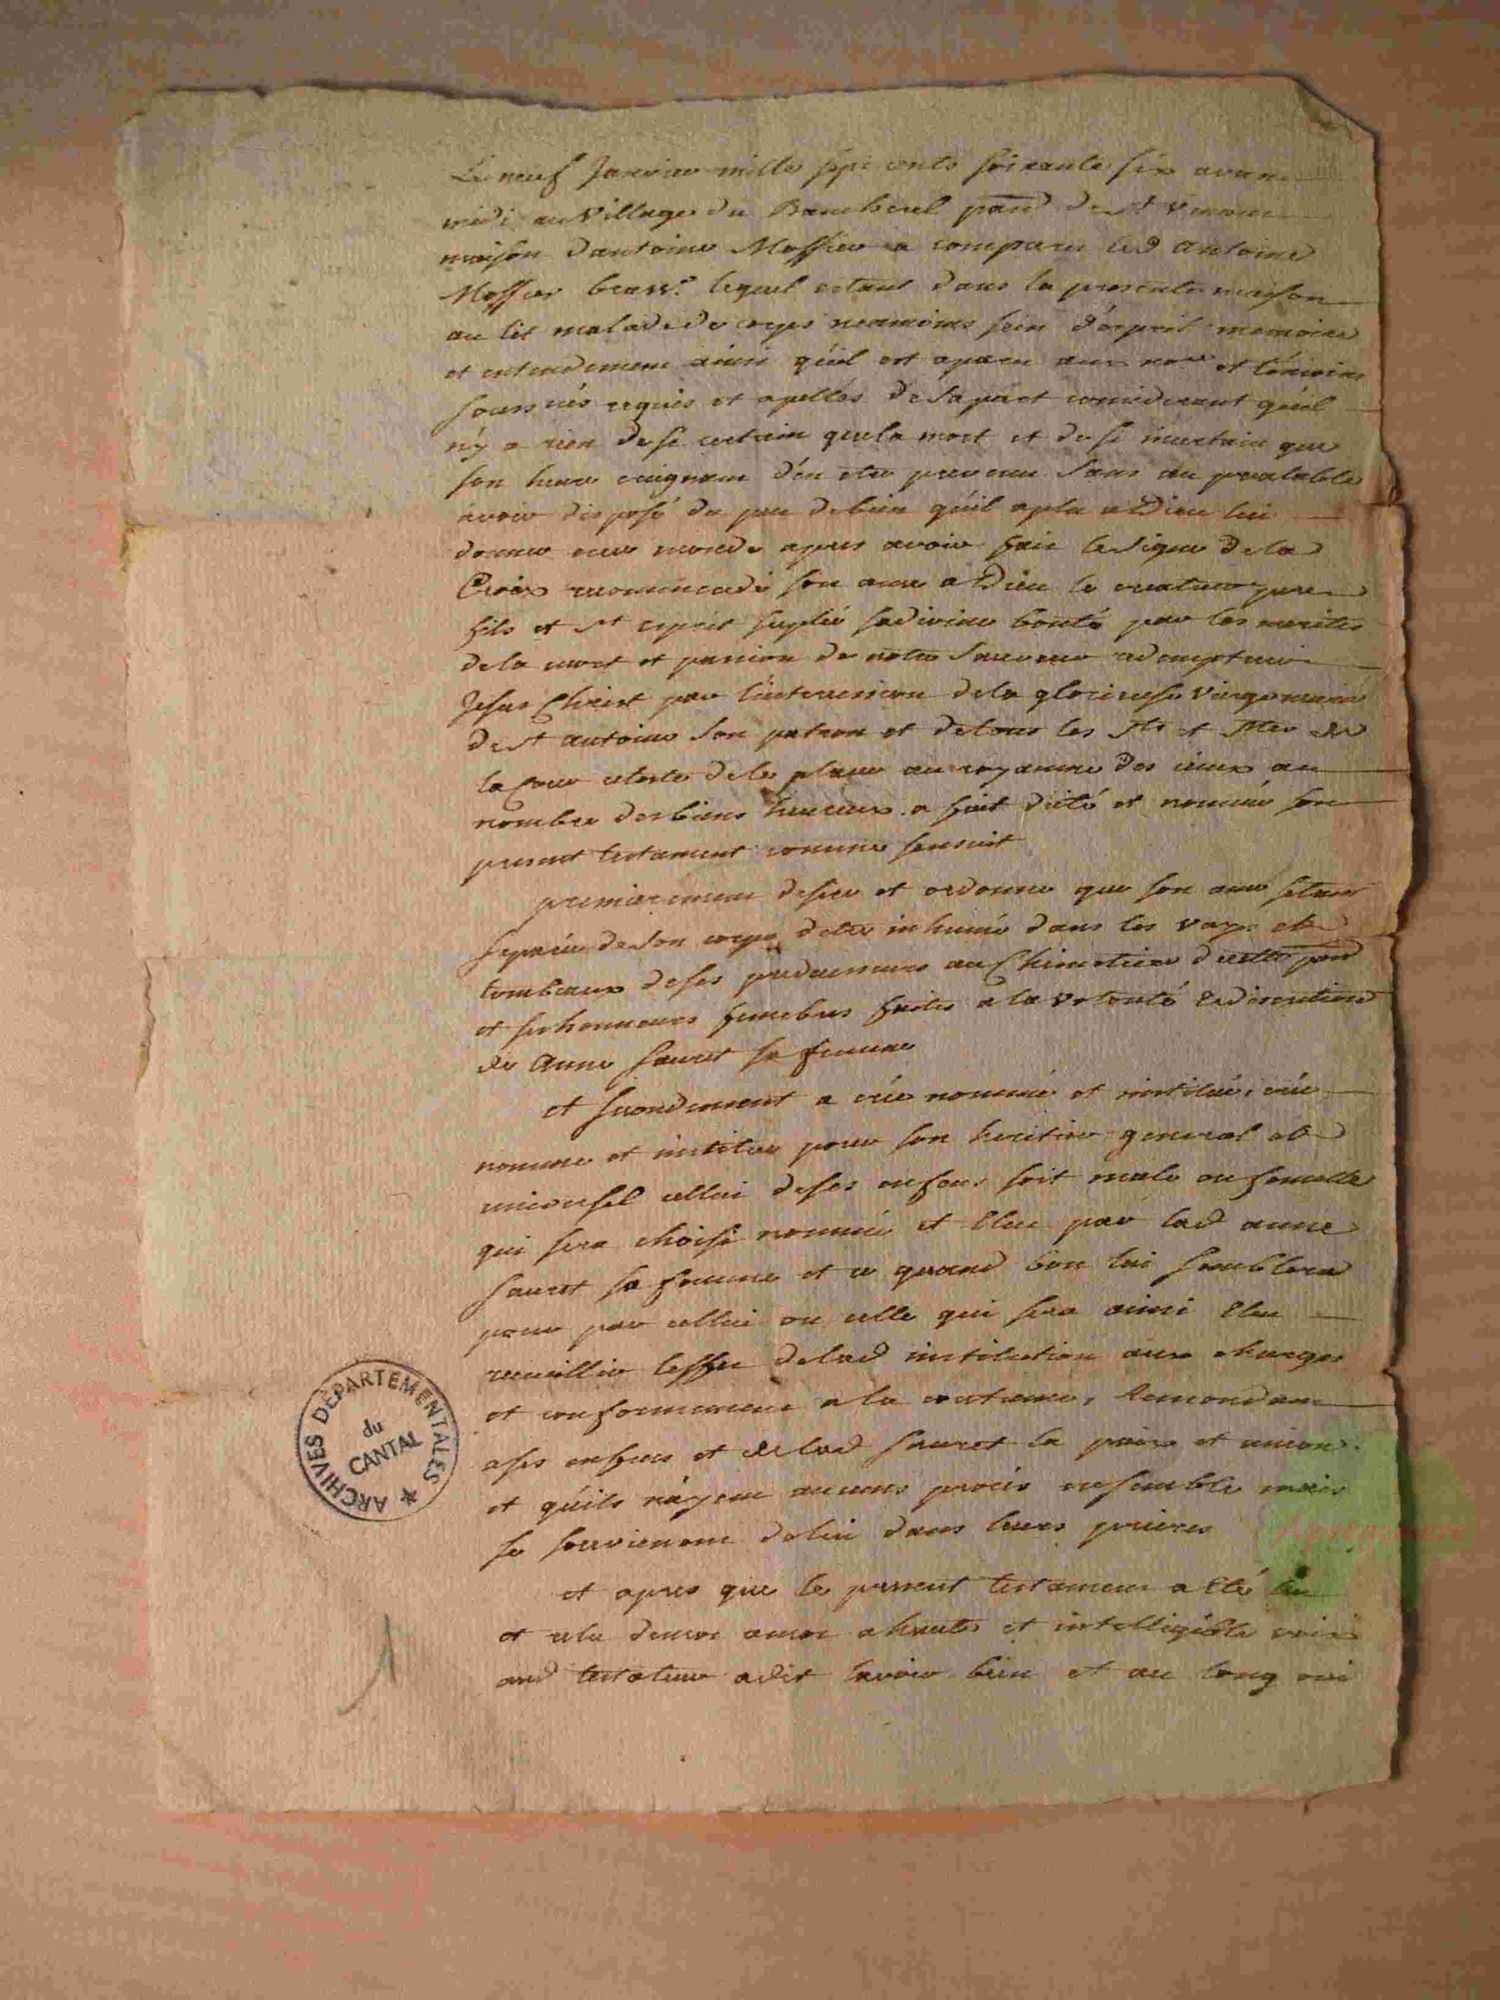 Le neuf Janvier mille sept cents soixante six avant
midi au village du Bancherel parr de St
maison dantoine Moissier a comparu led antoine
Moissier brass. lequel estant dans la presente maison
au lit malade de corps neanmoins sein d'esprit memoire
et entendement ainsi quil est aparu aux nore et témoins
soussnés requis et apellés de sa part considerant quil
n'y a rien de si certain que la mort et de si incertain que
son heure craignant d'en etre prevenu sans au prealable
avoir disposé du peu de bien quil a plu a Dieu lui
donner en ce monde apres avoir fait le signe de la
Croix recommendé son ame a Dieu le createur pere
fils et st esprit suplié sa divine bonté par les merites
de la mort et passion de notre Sauveur redempteur
Jesus Christ par l'intercession de la glorieuse Vierge marie
de st antoine son patron et de tous les sts et stes de
la Cour celeste de le placer au royaume des cieux au
nombre des biens heureux a fait dicté et nommé son
present testament comme sensuit
premierement desire et ordonne que son ame estant
separée de son corps detre inhumé dans les vazes et
tombeaux de ses predecesseurs au Chimetiere de cette parr
et ses honneurs funebres faites a la volonté & discrétion
de Anne Sauret sa femme
et secondement a crée nommé et institué, crée
nomme et institue pour son heritier general et
universel cellui de ses enfans soit male ou femelle
qui sera choisi nommé et Elu par lad anne
Sauret sa femme et ce quand bon lui semblera
pour par cellui ou celle qui sera ainsi Elu
recueillir leffet de lad institution aux charges
et conformement a la coutume, Remandant
a ses enfens et de lad Sauret la paix et union
et quils n'ayent aucuns procès ensemble mais
se souvienent de lui dans leurs prieres
et apres que le present testament a Eté lu
et relu demot amot a haute et intelligible voix
aud testateur a dit lavoir bien et au long oui
ARCHIVES DÉPARTEMENTALES
du
CANTAL
1